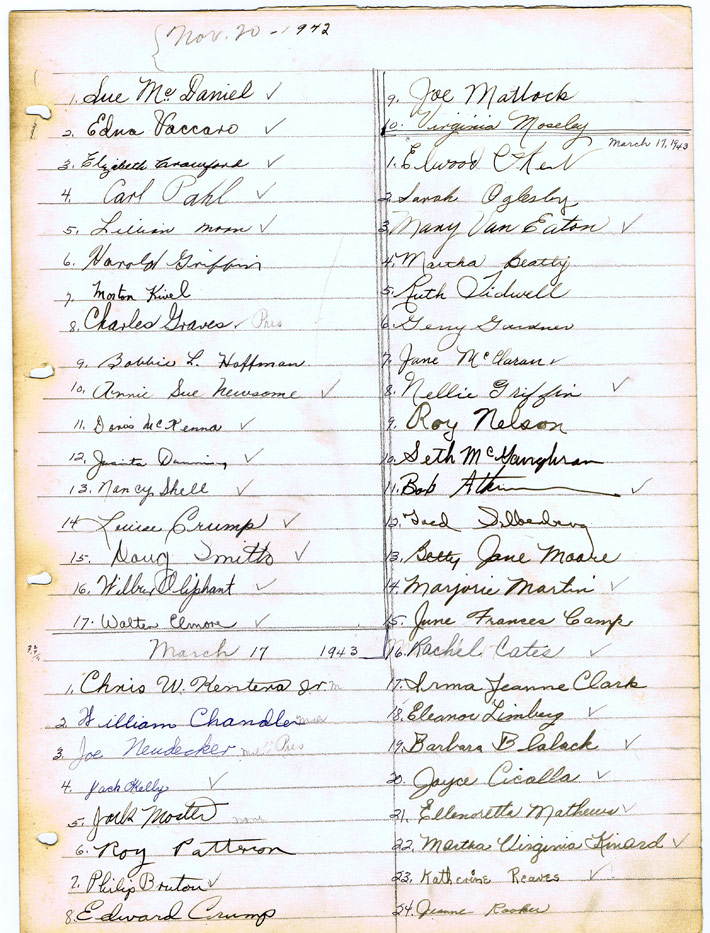 Nov. 20 - 1942
1. Sue McDaniel ✓
2. Edna Vaccaro ✓
3. Elizabeth Crawford ✓
4. Carl Pahl ✓
5. Lillian Moon ✓
6. Harold Griffin
7. Morton Kivel
8. Charles Graves ✓ Pres
9. Bobbie L. Hoffman
10. Annie Sue Newsome ✓
11. Doris McKenna ✓
12. Juanita ✓
13. Nancy Shell ✓
14 Louise Crump ✓
15. Doug Smith ✓
16. Wilbur Oliphant ✓
17. Walter Elmore ✓
March 17 1943
1. Chris W. Kentera Jr.
2. William Chandler
3. Joe Neudecker Pres
4. Jack Kelly ✓
5. Jack Moster none
6. Roy Patterson
7. Philip Bruton ✓
8. Edward Crump
9. Joe Matlock
10. Virginia Moseley
March 17, 1943
1. Elwood
2. Sarah Oglesby
3. Mary Van Eaton ✓
4. Martha Beatty
5. Ruth Tidwell
6. Gerry Gardner
7. Jane McClaran ✓
8. Nellie Griffin ✓
9. Roy Nelson
10. Seth McGaughran
11. Bob ✓
12. Silberberg
13. Betty Jane Moore
14. Marjorie Martin ✓
15. June Frances Camp
16. Rachel Cates ✓
17. Irma Jeanne Clark
18. Eleanor Limberg ✓
19. Barbara Blalack ✓
20. Joyce Cicalla ✓
21. Ellenoretta Mathews ✓
22. Martha Virginia Kinard ✓
23. Katherine Reaves ✓
24. Jeanne Rooker